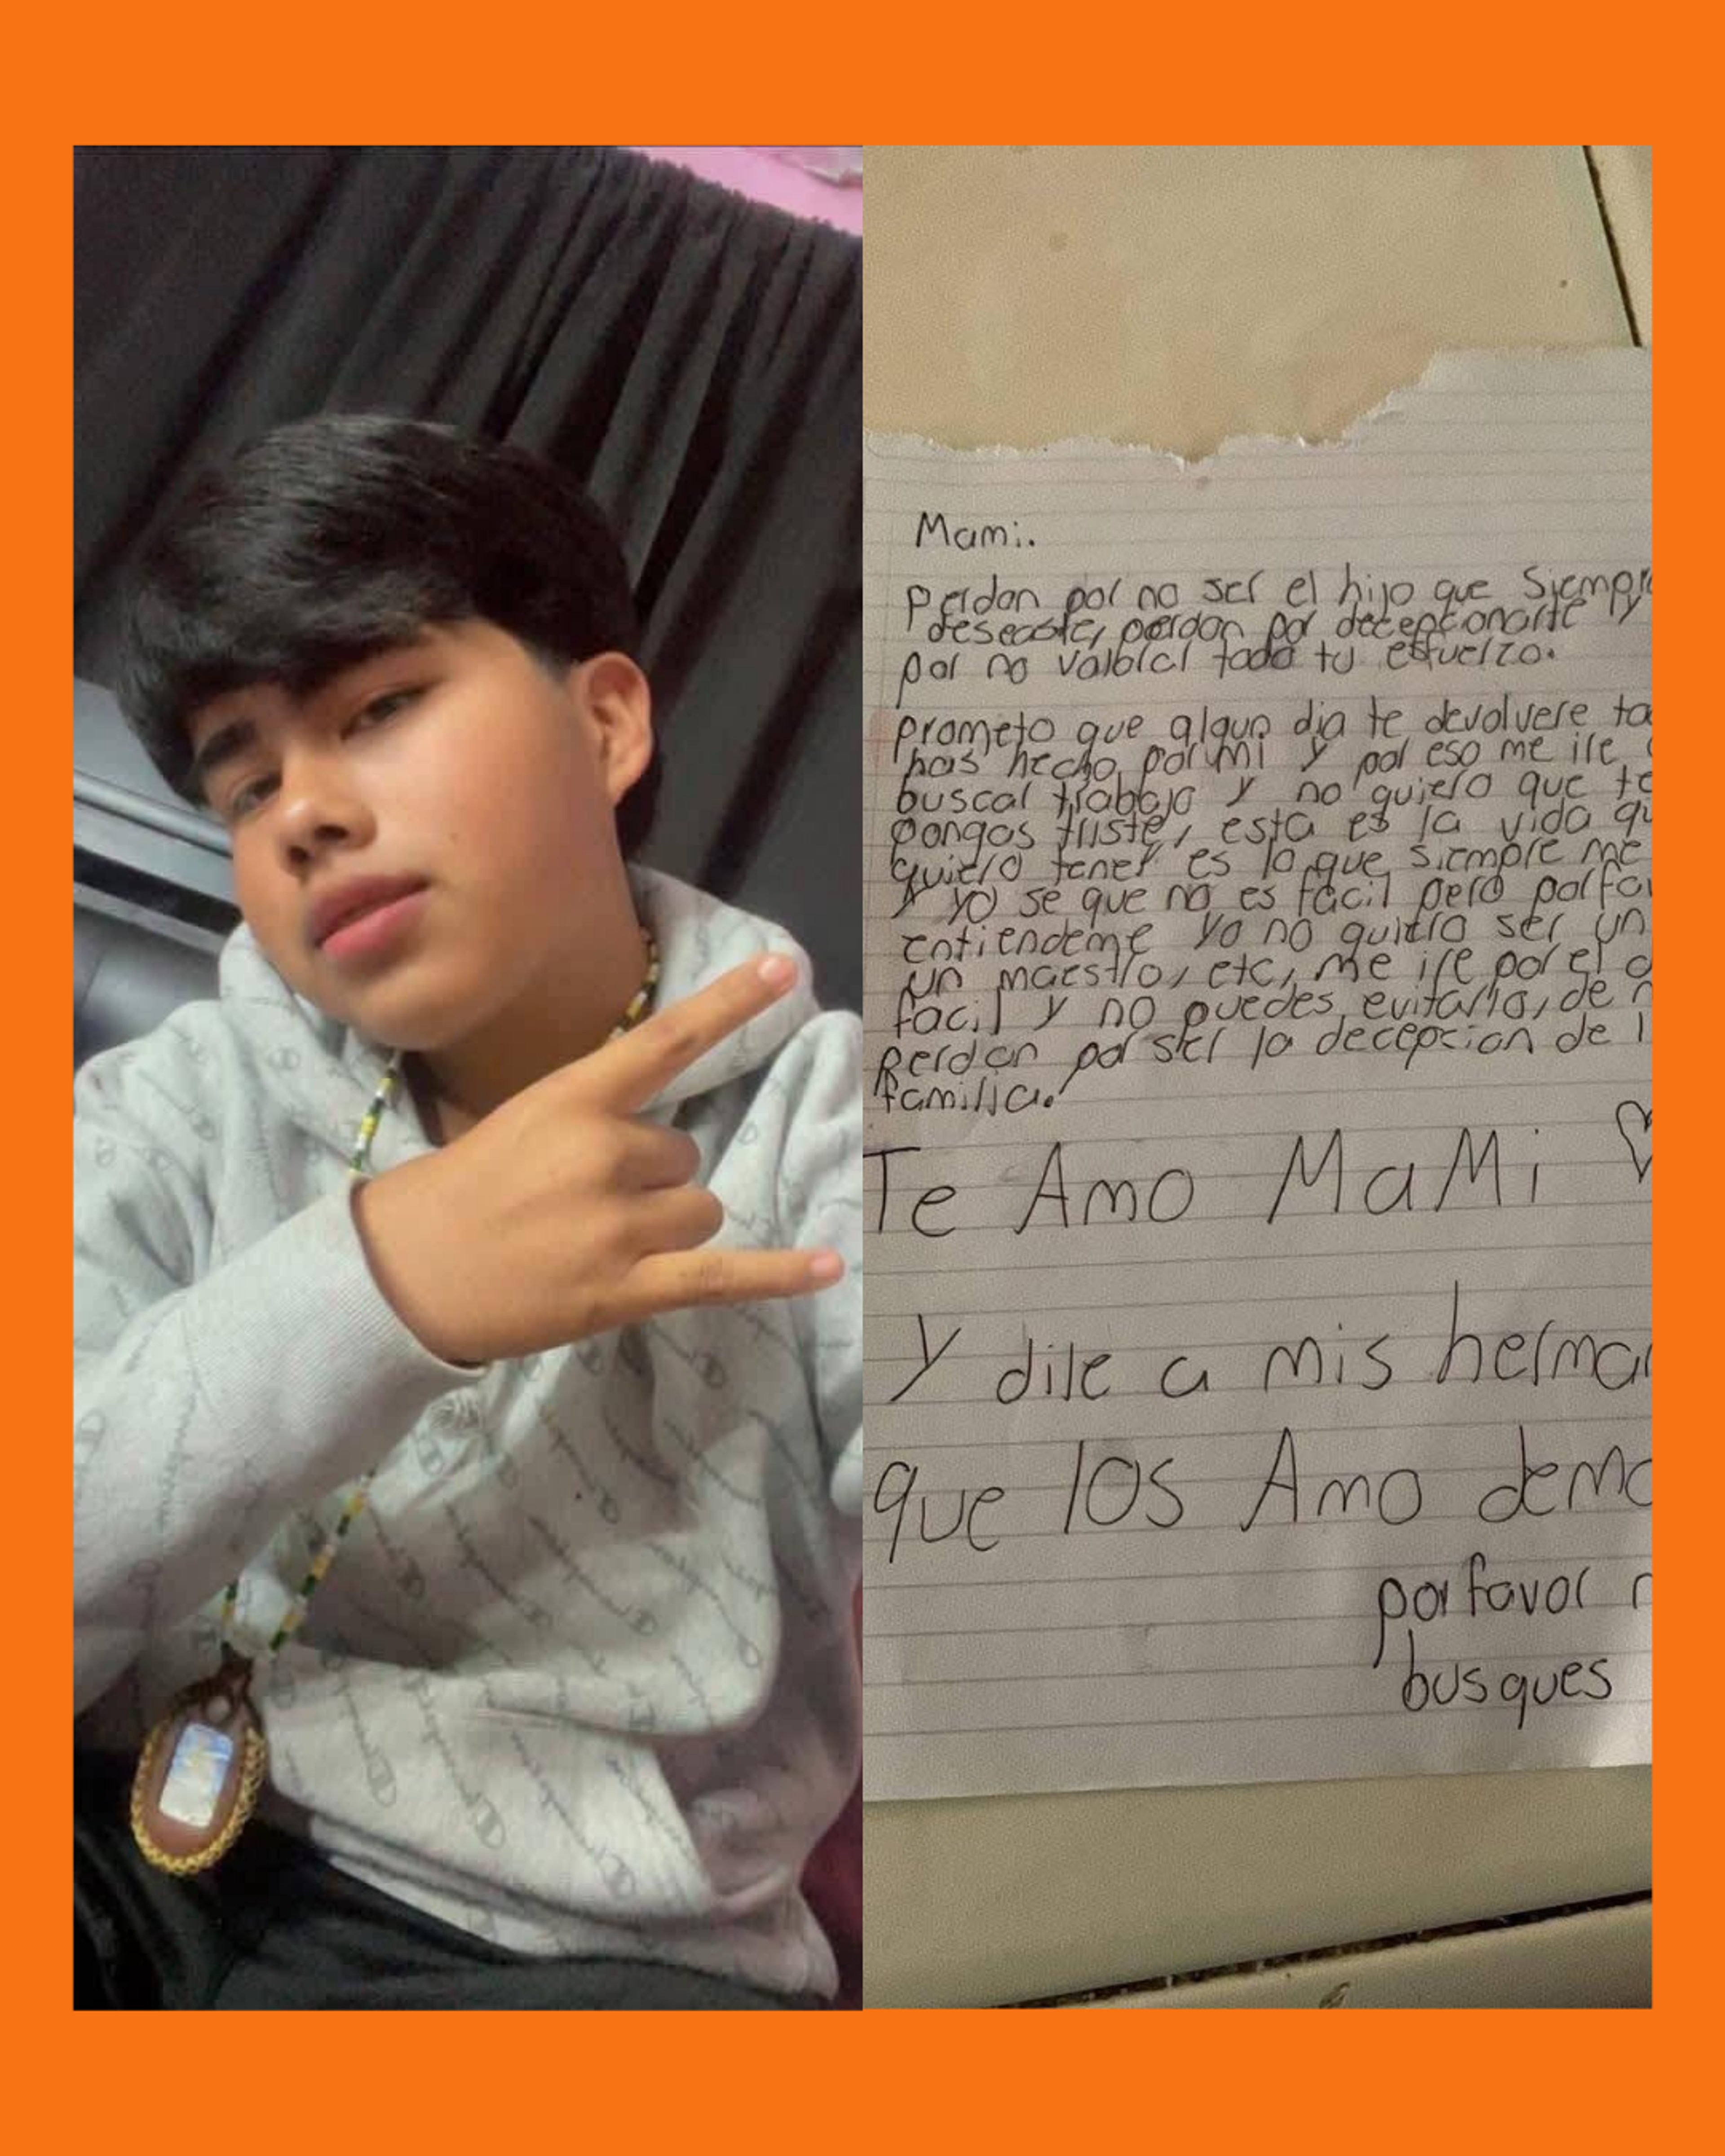 Mami.
perdon por no ser el hijo que siempre
deseaste, perdon por decepcionarte y
por no valorar todo tu esfuerzo.
prometo que algun dia te devolvere to
has hecho por mi y por eso me ire
buscar trabajo y no quiero que te
pongas triste, esta es la vida qu
quiero tener es lo que siempre me
y yo se que no es facil pero porfav
entiendeme yo no quiero ser un
un maestro, etc, me ire por el
facil y no puedes evitarlo, de n
perdon por ser la decepcion de l
familia.
Te Amo MaMi
y dile a mis herma
que los Amo dema
porfavor n
busques